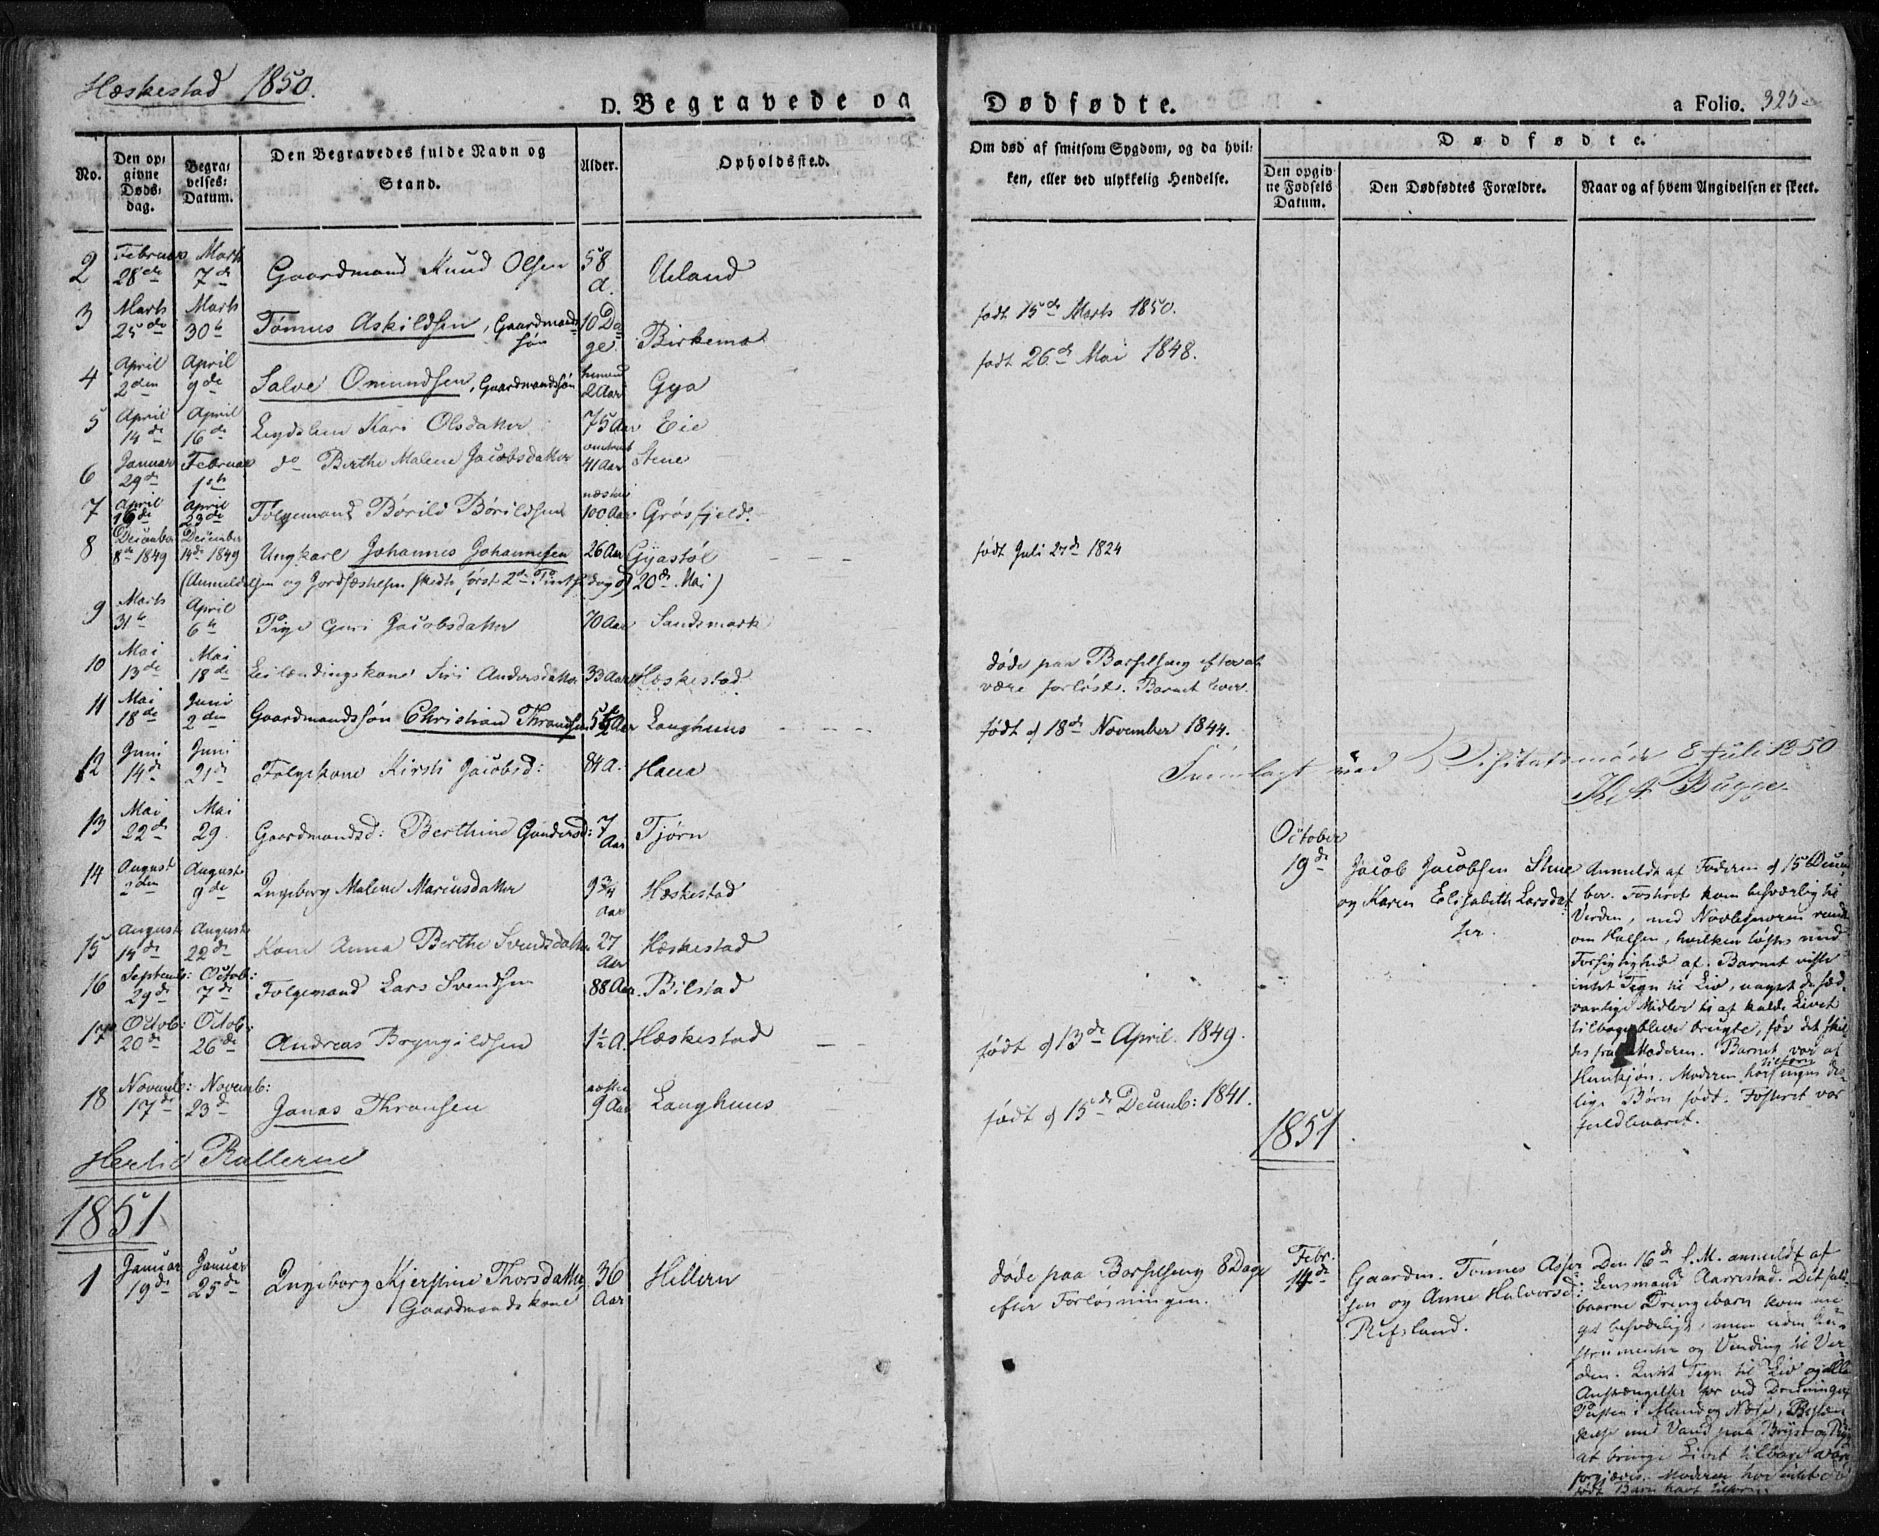 Hæskestad 1850.
D. Begravede og Dødfødte.
a Folio. 325
No.
Den opgivne Døds-dag.
Begravelses-Datum.
Den Begravedes fulde Navn og Stand.
Alder.
Opholdssted.
Om død af smitsom Sygdom, og da hvilken, eller ved ulykkelig Hendelse.
Dødfødte.
Den opgivne Fødsels Datum.
Den Dødfødtes Forældre.
Naar og af hvem Angivelsen er skeet.
2 Februar 28de Marts 7de Gaardmand Knud Olsen 58 a. Ueland
3 Marts 25de Marts 30te Tønnes Askildsen, Gaardmandssøn 10 Dage Birkemo født 15de Marts 1850.
4 April 2den April 9de Salve Omundsen, Gaardmandssøn henved 2 Aar Gya født 26de Mai 1848.
5 April 14de April 16de Legdslem Kari Olsdatter 75 Aar Eie
6 Januar 29de Februar 1ste do Berthe Malene Jacobsdatter omtrent 41 Aar Stene
7 April 16de April 23de Følgemand Børild Børildsen næsten 100 Aar Grøsfjeld.
8 December 8de 1849 December 14de 1849 Ungkarl Johannes Johannesen 26 Aar Gyastøl født Juli 27de 1824
(Anmeldelsen og Jordfæstelsen skedte først 2den Pintsedag d 20de Mai)
9 Marts 31te April 6te Pige Guri Jacobsdatter 70 Aar Sandsmark
10 Mai 13de Mai 18de Leilændingskone Siri Andersdatter 33 Aar Hæskestad døde paa Barselseng efter at være forløst. Barnet lever.
11 Mai 18de Juni 2den Gaardmandssøn Christian Thransen 5½ Aar Langhuus født d 18de November 1844.
12 Juni 14de Juni 21de Følgekone Kirsti Jacobsd: 84 A. Haua
Fremlagt ved Visitatsmøde 8 Juli 1850
Bugge.
13 Mai 22de Mai 29. Gaardmandsd: Berthine Gundersd: 7 Aar Tjørn
14 August 2den August 9de Ingeborg Malene Mariusdatter 9¾ Aar Hæskestad
15 August 14de August 22de Kone Anna Berthe Svendsdatter 27 Aar Hæskestad
16 Septemb: 29de Octob: 7de Følgemand Lars Svendsen 88 Aar Bilstad
17 Octob: 20de Octob: 26de Andreas Bryngildsen 1½ A. Hæskestad født d 13de April 1849.
18 Novemb: 17de Novemb: 23de Jonas Thransen næsten 9 Aar Langhuus født d 15de Decemb: 1841.
October 19de
Jacob Jacobsen Stene
og Karen Elisabeth Larsdatter
Anmeldt af Faderen d 15 Decem-
ber. Fostret kom besværlig til
Verden, med Navlesnoren rundt
om Halsen, hvilken løstes med
Forsigtighed af. Barnet viste
intet Tegn til Liv, uagtet de sæd-
vanlige Midler til at kalde Livet
tilbage bleve brugte, før det skil-
tes fra Moderen. Barnet var af
Hunkjøn. Moderen har tilforn ingen dø-
lige Børn født. Fosteret var
fuldbaaret.
Hertil Rullerne
1851
1851.
1 Januar 19de Januar 25de Ingeborg Kjerstine Thorsdatter, Gaardmandskone 36 Aar Hellern døde paa Barselseng 8 Dage efter Forløsningen.
Febr. 14de
Gaardm. Tønnes Asser-
sen og Anne Halvorsd:
Refsland.
Den 16de s. M. anmeldt af
Lensmand Aarrestad. Det fuld-
baarne Drengebarn kom me-
get besværligt, men uden In-
strumenter og Vending til Ver-
den. Intet Tegn til Liv og alle
Anstrængelser
Pusten i Mund og Næse,
med Vand paa Bryst og
at bringe Livet tilbage vare
forgjæves. Moderen har intet død-
født Barn havt tilforn.